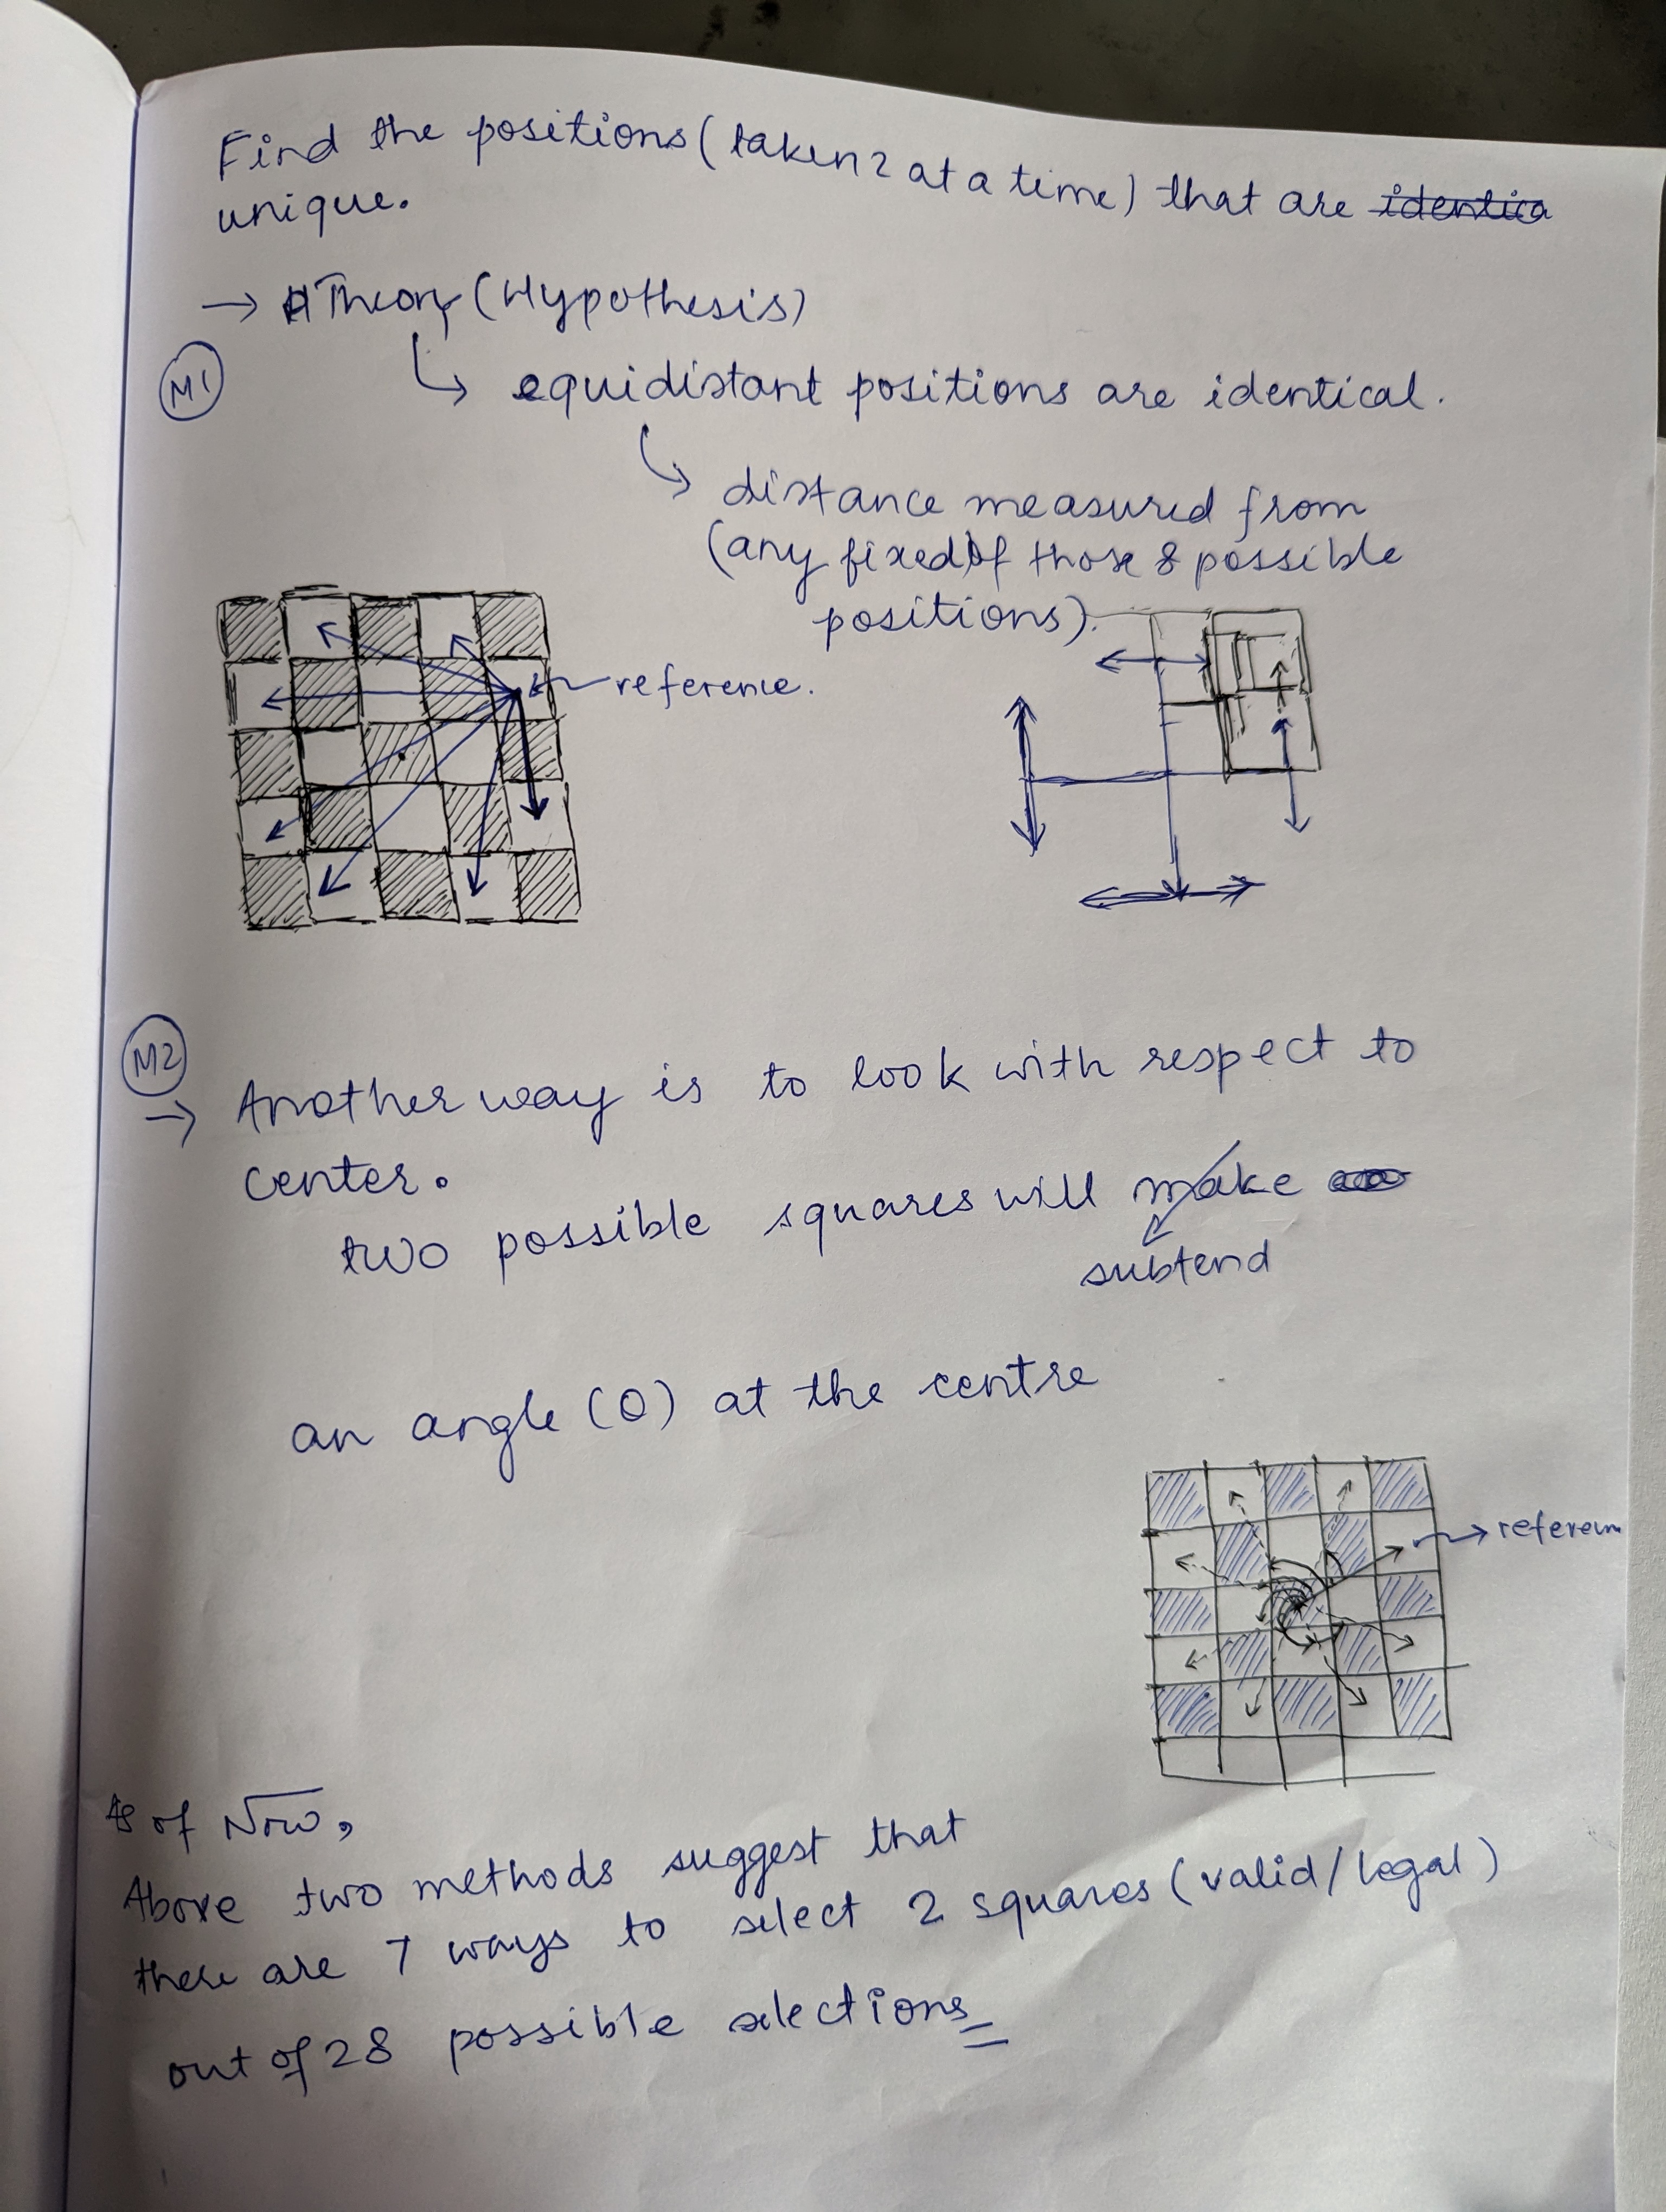 Find the positions (taken 2 at a time) that are identica
unique.
→ Theory (Hypothesis)
M1
equidistant positions are identical.
distance measured from
(any fixed) of those 8 possible
positions).
reference.
M2
→ Another way is to look with respect to
center.
two possible squares will make
subtend
an angle (θ) at the centre
referen
As of Now,
Above two methods suggest that
there are 7 ways to select 2 squares (valid/legal)
out of 28 possible selections